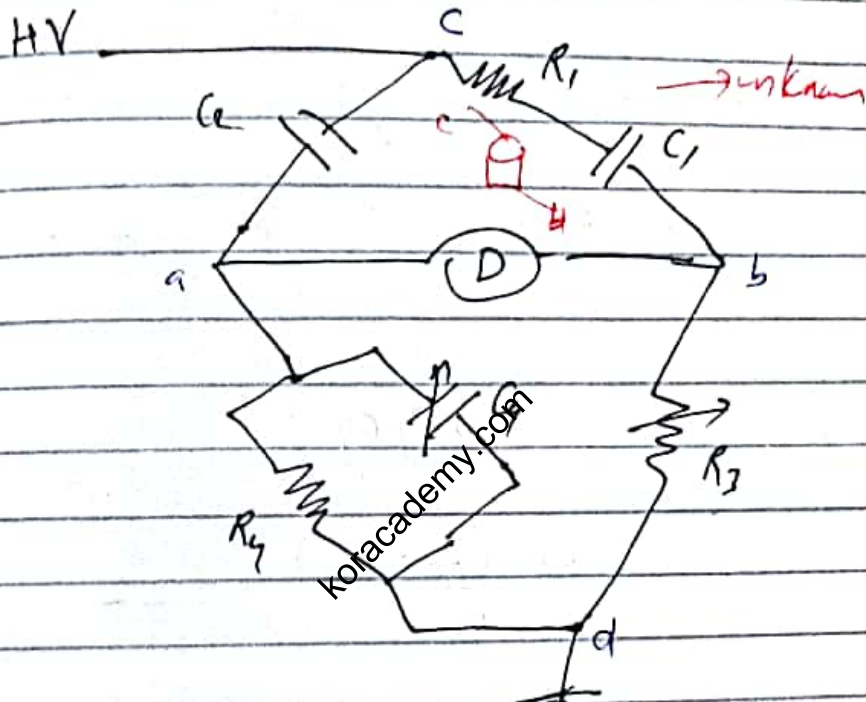 C
HV
R1
unknown
C2
C1
a
D
b
R3
R4
koracademy.com
d